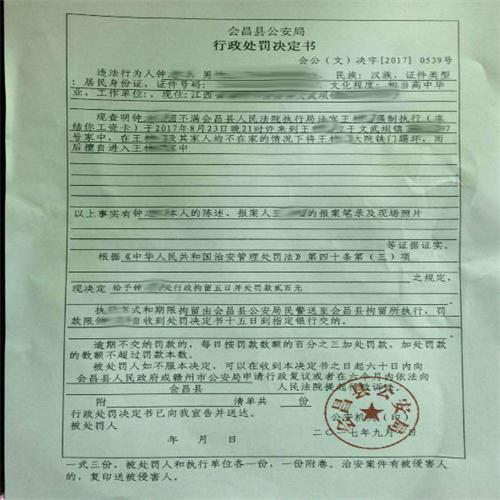 会昌县公安局
行政处罚决定书
会公(文)决字[2017] 0539号
违法行为人钟 男 民族:汉族,证件类型
:居民身份证,证件号码: 文化程度:相当高中毕
业,工作单位:,现住:江西 文武坝
现查明钟 因不满会昌县人民法院执行局法官王 强制执行(冻
结你工资卡)于2017年8月23日晚21时许来到王 于文武坝镇
号家中,在王 及其家人均不在家的情况下将王 大院铁门踢坏,而
后擅自进入王 家中
以上事实有钟 本人的陈述、报案人王 的报案笔录及现场照片
等证据证实。
根据《中华人民共和国治安管理处罚法》第四十条第(三)项
之规定,
现决定 给予钟 行政拘留五日并处罚款贰百元
执 式和期限拘留由会昌县公安局民警送至会昌县拘留所执行,罚
款限钟 自收到处罚决定书十五日到指定银行交纳。
逾期不交纳罚款的,每日按罚款数额的百分之三加处罚款,加处罚款
的数额不超过罚款本数。
被处罚人如不服本决定,可以在收到本决定书之日起六十日内向
会昌县人民政府或赣州市公安局申请行政复议或者在六个月内依法向
会昌县 人民法院提起行政诉讼。
附 清单共 份
行政处罚决定书已向我宣告并送达。 公安机关(印)
被处罚人 二〇一七年九月 日
年 月 日
会昌县公安局
一式三份,被处罚人和执行单位各一份,一份附卷。治安案件有被侵害人
的,复印送被侵害人。